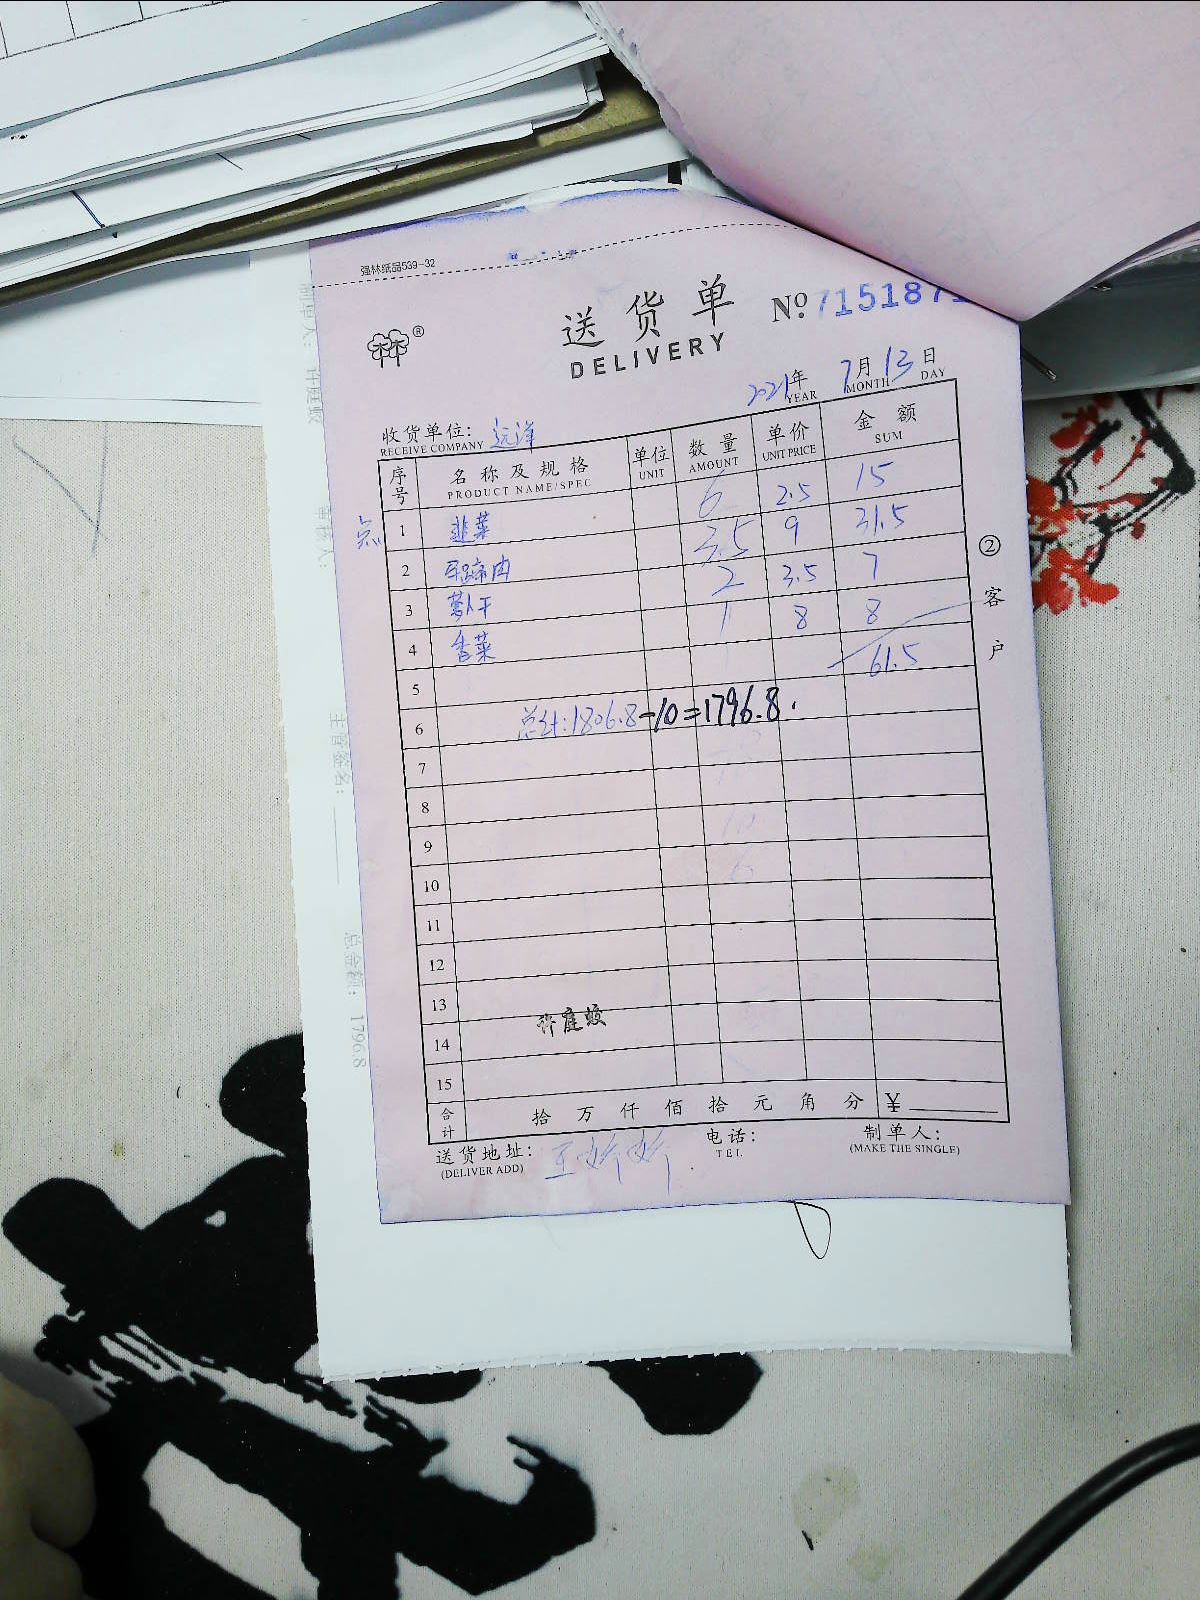 强林纸品539-32
送货单
DELIVERY
2021年 7月 13日
YEAR MONTH DAY
收货单位: 远洋
RECEIVE COMPANY
序号 名称及规格 单位 数量 单价 金额
PRODUCT NAME/SPEC UNIT AMOUNT UNIT PRICE SUM
点 1 韭菜 6 2.5 15
2 马蹄肉 3.5 9 31.5
3 萝卜干 2 3.5 7
4 香菜 1 8 8
5 61.5
6 总计:1806.8-10=1796.8.
7
8
9
10
11
12
13
14 许庭蛟
15
合计 拾 万 仟 佰 拾 元 角 分 ¥
送货地址: 电话: 制单人:
(DELIVER ADD) TEL (MAKE THE SINGLE)
② 客户
主管签名:
总金额: 1796.8